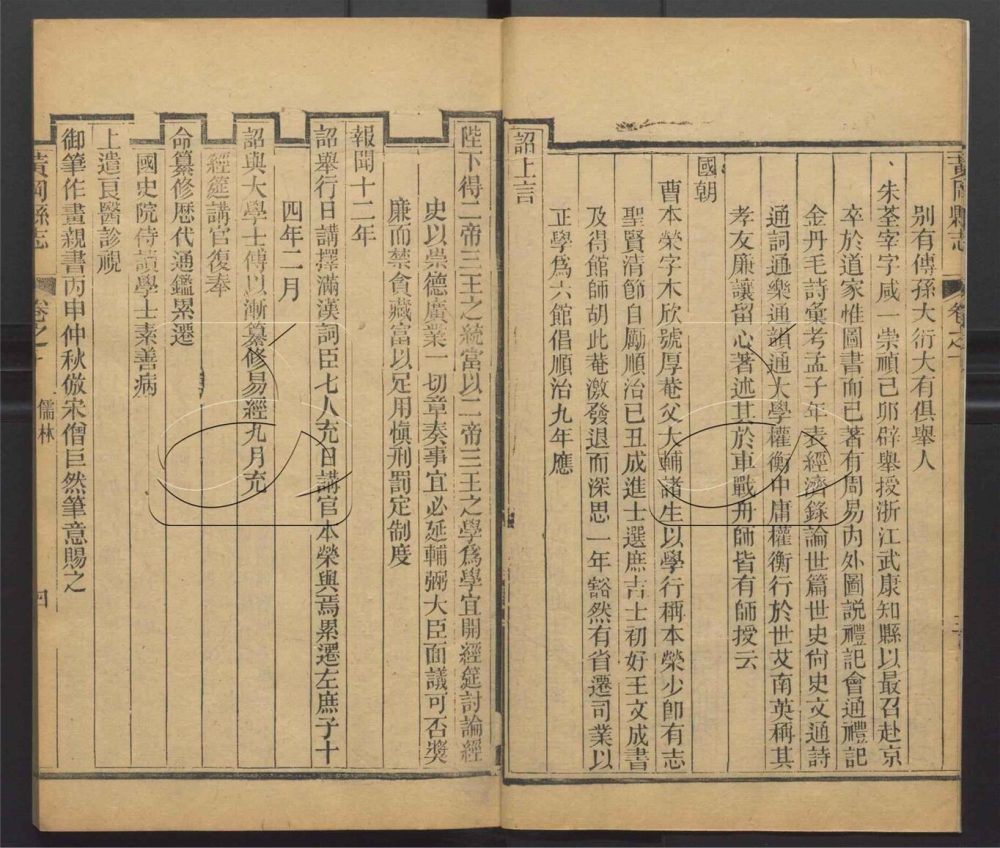 黃岡縣志
卷之十
別有傳孫大衍大有俱舉人
朱荃宰字咸一崇禎己卯辟舉授浙江武康知縣以最召赴京
卒於道家惟圖書而已著有周易內外圖說禮記會通禮記
金丹毛詩彙考孟子年表經濟錄論世篇世史尙史文通詩
通詞通樂通韻通大學權衡中庸權衡行於世艾南英稱其
孝友廉讓留心著述其於車戰舟師皆有師授云
國朝
曹本榮字木欣號厚菴父大輔諸生以學行稱本榮少卽有志
聖賢清節自勵順治己丑成進士選庶吉士初好王文成書
及得館師胡此菴激發退而深思一年豁然有省遷司業以
正學爲六館倡順治九年應
詔上言
陛下得二帝三王之統當以二帝三王之學爲學宜開經筵討論經
史以崇德廣業一切章奏事宜必延輔弼大臣面議可否獎
廉而禁貪藏富以足用愼刑罰定制度
報聞十二年
詔舉行日講擇滿漢詞臣七人充日講官本榮與焉累遷左庶子十
四年二月
詔與大學士傅以漸纂修易經九月充
經筵講官復奉
命纂修歷代通鑑累遷
國史院侍讀學士素善病
上遣良醫診視
御筆作畫親書丙申仲秋倣宋僧巨然筆意賜之
黃岡縣志
卷之十
儒林
四